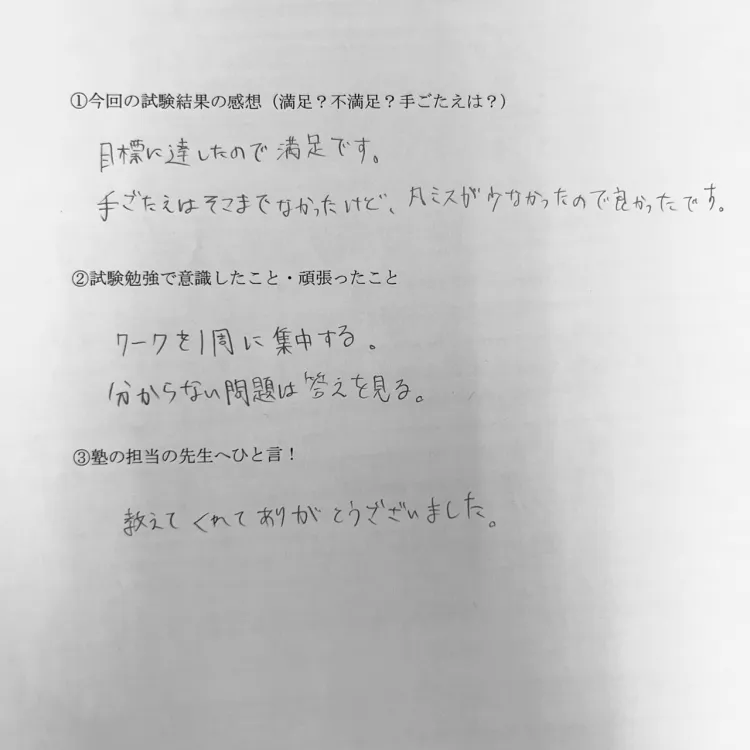 ①今回の試験結果の感想（満足？不満足？手ごたえは？）
目標に達したので満足です。
手ごたえはそこまでなかったけど、凡ミスが少なかったので良かったです。
②試験勉強で意識したこと・頑張ったこと
ワークを1周に集中する。
分からない問題は答えを見る。
③塾の担当の先生へひと言！
教えてくれてありがとうございました。